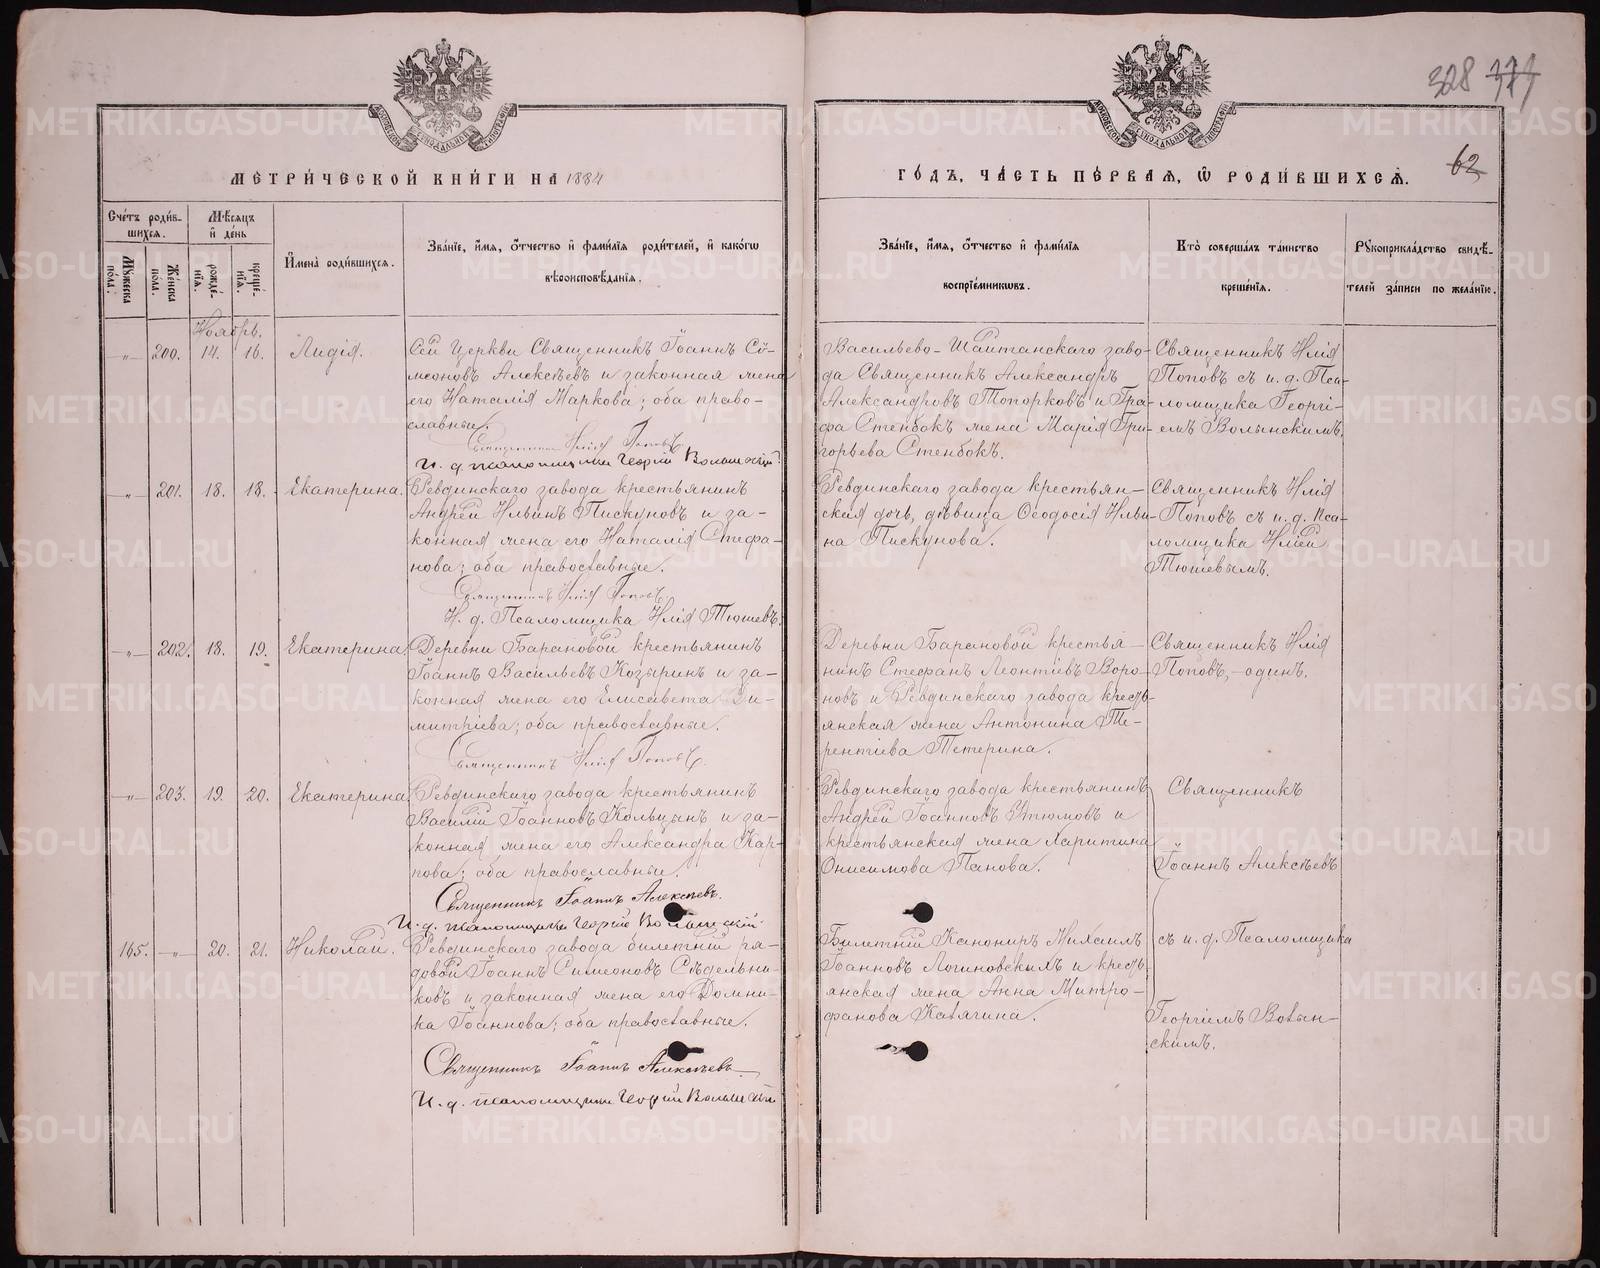 328 373
62
МЕТРИЧЕСКОЙ КНИГИ НА 1884
ГОДЪ, ЧАСТЬ ПЕРВАЯ, Ѡ РОДИВШИХСЯ.
Счетъ родив-
шихся.
Мѣсяцъ
и день
Мужеска
пола.
Женска
пола.
рожде-
нія.
креще-
нія.
Имена родившихся.
Званіе, имя, отчество и фамилія родителей, и какогѡ
вѣроисповѣданія.
Званіе, имя, отчество и фамилія
воспріемниковъ.
Кто совершалъ таинство
крещенія.
Рукоприкладство свидѣ-
телей записи по желанію.
Ноябрь.
-„- 200. 14. 16. Лидія.
Сей Церкви Священникъ Іоаннъ Си-
меоновъ Алексѣевъ и законная жена
его Наталія Маркова; оба право-
славные.
Священникъ Илія Поповъ
И. д. псаломщика Георгій Волынскій
Васильево-Шайтанскаго заво-
да Священникъ Александръ
Александровъ Топорковъ и Гра-
фа Стенбокъ жена Марія Гри-
горьева Стенбокъ.
Священникъ Илія
Поповъ съ и. д. Пса-
ломщика Георгі-
емъ Волынскимъ.
-„- 201. 18. 18. Екатерина.
Ревдинскаго завода крестьянинъ
Андрей Ильинъ Пискуновъ и за-
конная жена его Наталія Стефа-
нова; оба православные.
Священникъ Илія Поповъ
И. д. Псаломщика Илія Тюшевъ.
Ревдинскаго завода крестьян-
ская дочь, дѣвица Ѳеодосія Ильи-
на Пискунова.
Священникъ Илія
Поповъ съ и. д. Пса-
ломщика Иліей
Тюшевымъ.
-„- 202. 18. 19. Екатерина.
Деревни Барановой крестьянинъ
Іоаннъ Васильевъ Козыринъ и за-
конная жена его Елисавета Ди-
митріева; оба православные.
Священникъ Илія Поповъ.
Деревни Барановой крестья-
нинъ Стефанъ Леонтіевъ Воро-
новъ и Ревдинскаго завода кресть-
янская жена Антонина Те-
рентіева Тетерина.
Священникъ Илія
Поповъ, - одинъ.
-„- 203. 19. 20. Екатерина.
Ревдинскаго завода крестьянинъ
Василій Іоанновъ Кольцынъ и за-
конная жена его Александра Кар-
пова; оба православные.
Священникъ Іоаннъ Алексѣевъ.
И. д. псаломщика Георгій Волынскій
Ревдинскаго завода крестьянинъ
Андрей Іоанновъ Утюмовъ и
крестьянская жена Харитина
Онисимова Панова.
Священникъ
Іоаннъ Алексѣевъ
165. -„- 20. 21. Николай.
Ревдинскаго завода билетній ря-
довой Іоаннъ Симеоновъ Сѣдельни-
ковъ и законная жена его Домни-
ка Іоаннова; оба православные.
Священникъ Іоаннъ Алексѣевъ
И. д. псаломщика Георгій Волынскій
Билетній Канониръ Михаилъ
Іоанновъ Логиновскихъ и кресть-
янская жена Анна Митро-
фанова Калягина.
съ и. д. Псаломщика
Георгіемъ Волын-
скимъ.